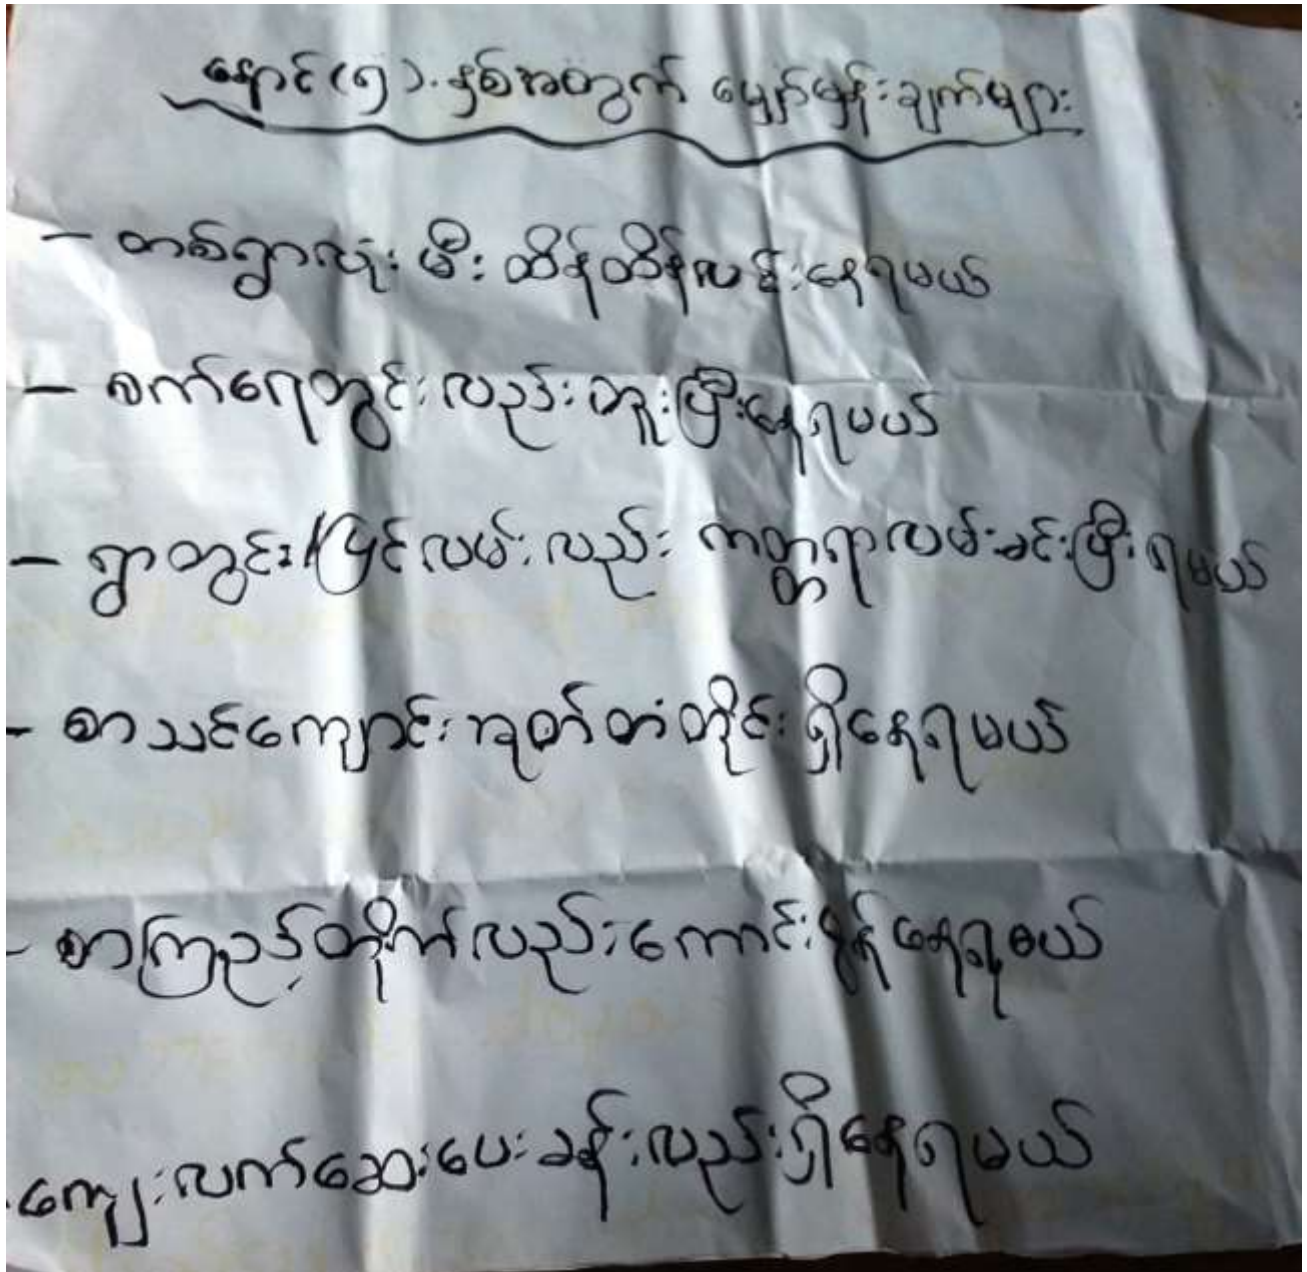 နောင်(၅).နှစ်အတွက် မျှော်မှန်းချက်များ
- တစ်ရွာလုံး မီး ထိန်ထိန်လင်းနေရမယ်
- စက်ရေတွင်းလည်းတူးပြီးနေရမယ်
- ရွာတွင်း/ပြင်လမ်းလည်း ကတ္တရာလမ်းခင်းပြီးရမယ်
- စာသင်ကျောင်းအုတ်တံတိုင်းရှိနေရမယ်
- စာကြည့်တိုက်လည်းကောင်းမွန်နေရမယ်
- ကျေးလက်ဆေးပေးခန်းလည်းရှိနေရမယ်